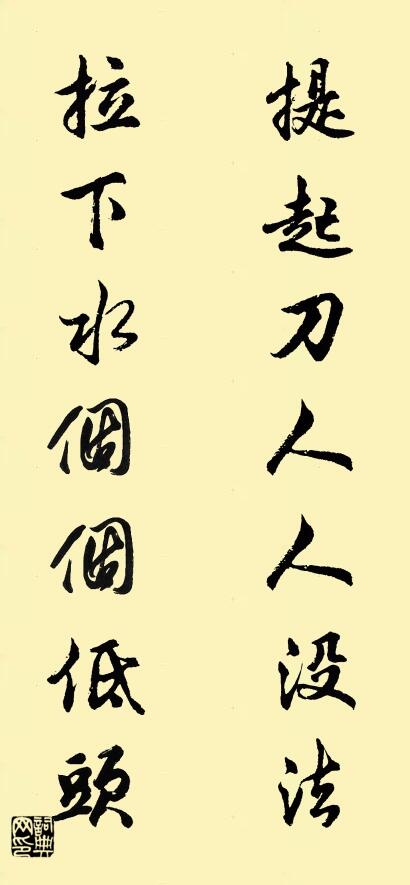 提起刀人人没法
拉下水個個低頭
詞典網印